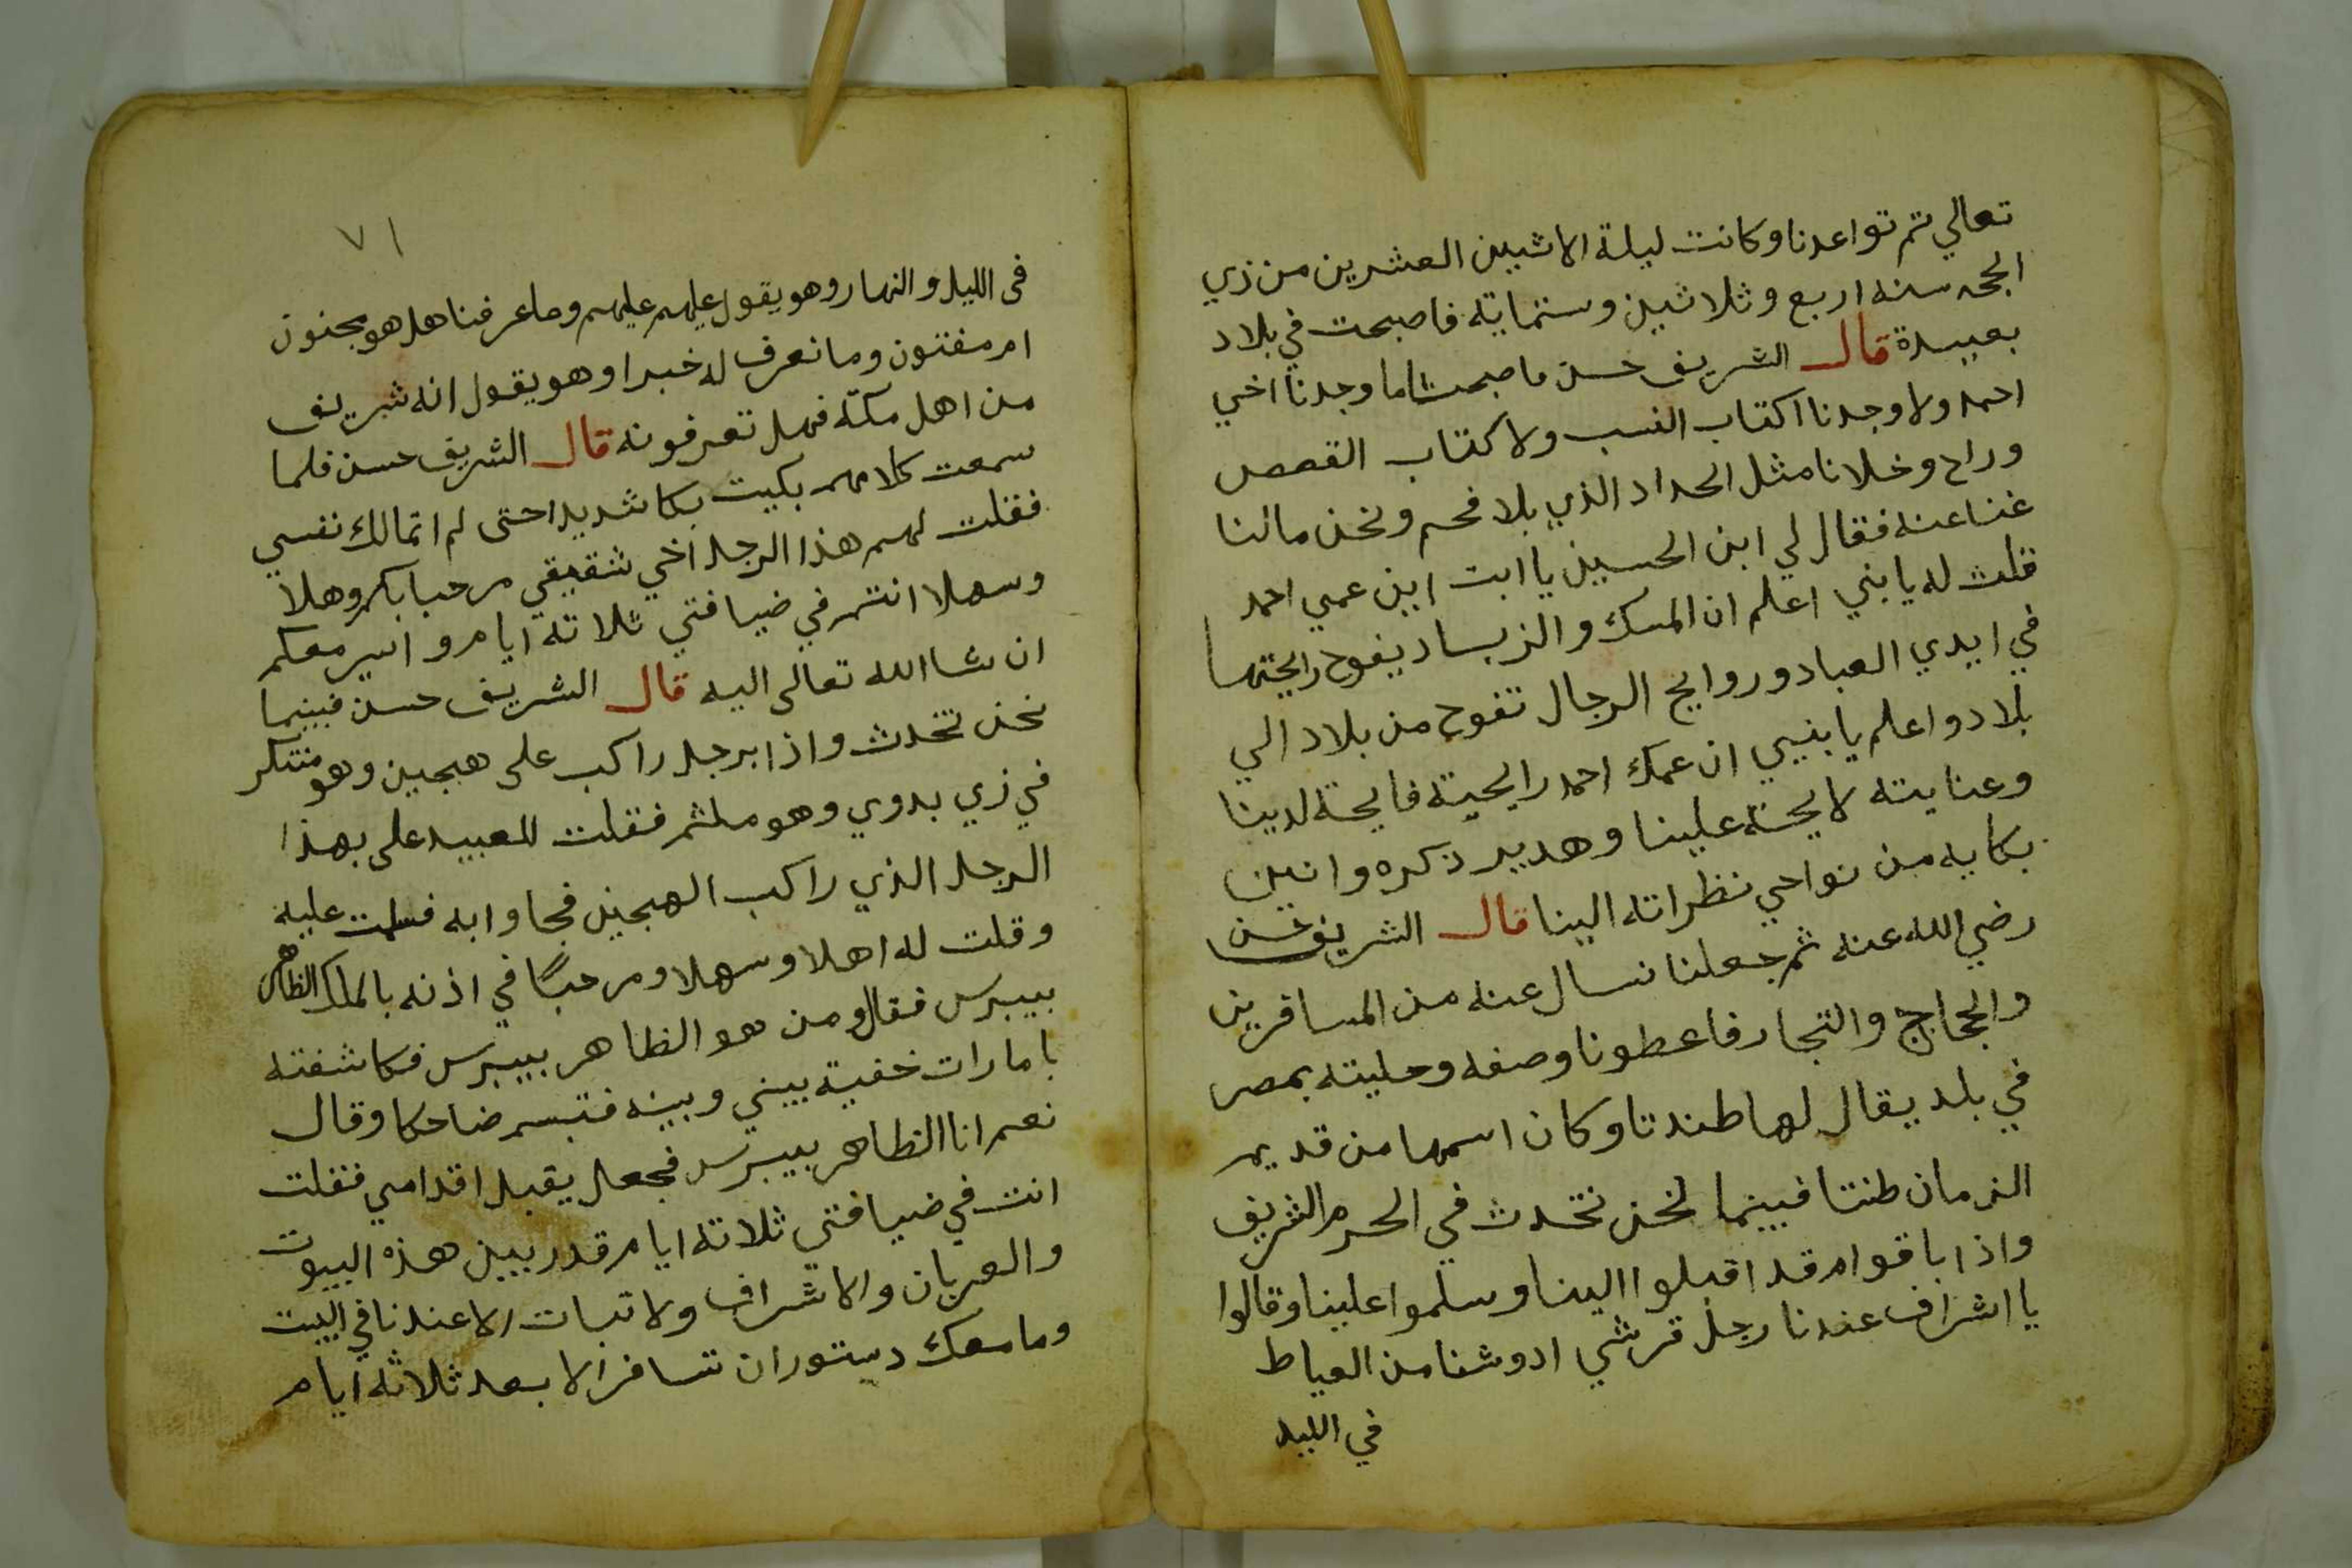 تعالي ثم تواعدنا وكانت ليلة الاثنين العشرين من زي
الحجه سنه اربع وثلاثين وستماية فاصبحت في بلاد
بعيسدة قال الشريف حسن ما صبحت اما وجدنا اخي
احمد ولا وجدنا اكتاب النسب ولا كتاب القصص
وراح وخلانا مثل الحداد الذي بلا فحم ونحن مالنا
غنا عنه فقال لي ابن الحسين يا ابت اين عمي احمد
قلت له يا بني اعلم ان المسك والزباد يفوح رايحتهما
في ايدي العباد وروايح الرجال تفوح من بلاد الي
بلاد واعلم يا بنيي ان عمك احمد رايحيته فايحة لدينا
وعنايته لايحة علينا وهدير ذكره وانين
بكايه من نواحي نظراته الينا قال الشريف حسن
رضي الله عنه ثم جعلنا نسال عنه من المسافرين
والحجاج والتجار فاعطونا وصفه وحليته بمصر
في بلد يقال لها طندتا وكان اسمها من قديم
الزمان طنتا فبينما نحن نتحدث في الحرم الشريف
واذا باقوام قد اقبلوا الينا وسلموا علينا وقالوا
يا اشراف عندنا رجل قرشي ادوشنا من العياط
في الليل
٧١
في الليل والنهار وهو يقول عليهم عليهم وما عرفنا هل هو مجنون
ام مفتون وما نعرف له خبرا وهو يقول انه شريف
من اهل مكة فهل تعرفونه قال الشريف حسن فلما
سمعت كلامهم بكيت بكا شديدا حتى لم اتمالك نفسي
فقلت لهم هذا الرجل اخي شقيقي مرحبا بكم وهلا
وسهلا انتم في ضيافتي ثلاثة ايام واسير معكم
ان شا الله تعالى اليه قال الشريف حسن فبينما
نحن نتحدث واذا برجل راكب على هجين وهو متنكر
في زي بدوي وهو ملثم فقلت للعبيد على بهذا
الرجل الذي راكب الهجين فجاوا به فسلمت عليه
وقلت له اهلا وسهلا ومرحبًا في اذنه بالملك الظاهر
بيبرس فقال ومن هو الظاهر بيبرس فكاشفته
بامارات خفية بيني وبينه فتبسم ضاحكا وقال
نعم انا الظاهر بيبرس فجعل يقبل اقدامي فقلت
انت في ضيافتي ثلاثة ايام قدر بين هذه البيوت
والعربان والاشراف ولا تبات الا عندنا في البيت
وما معك دستور ان تسافر الا بعد ثلاثة ايام